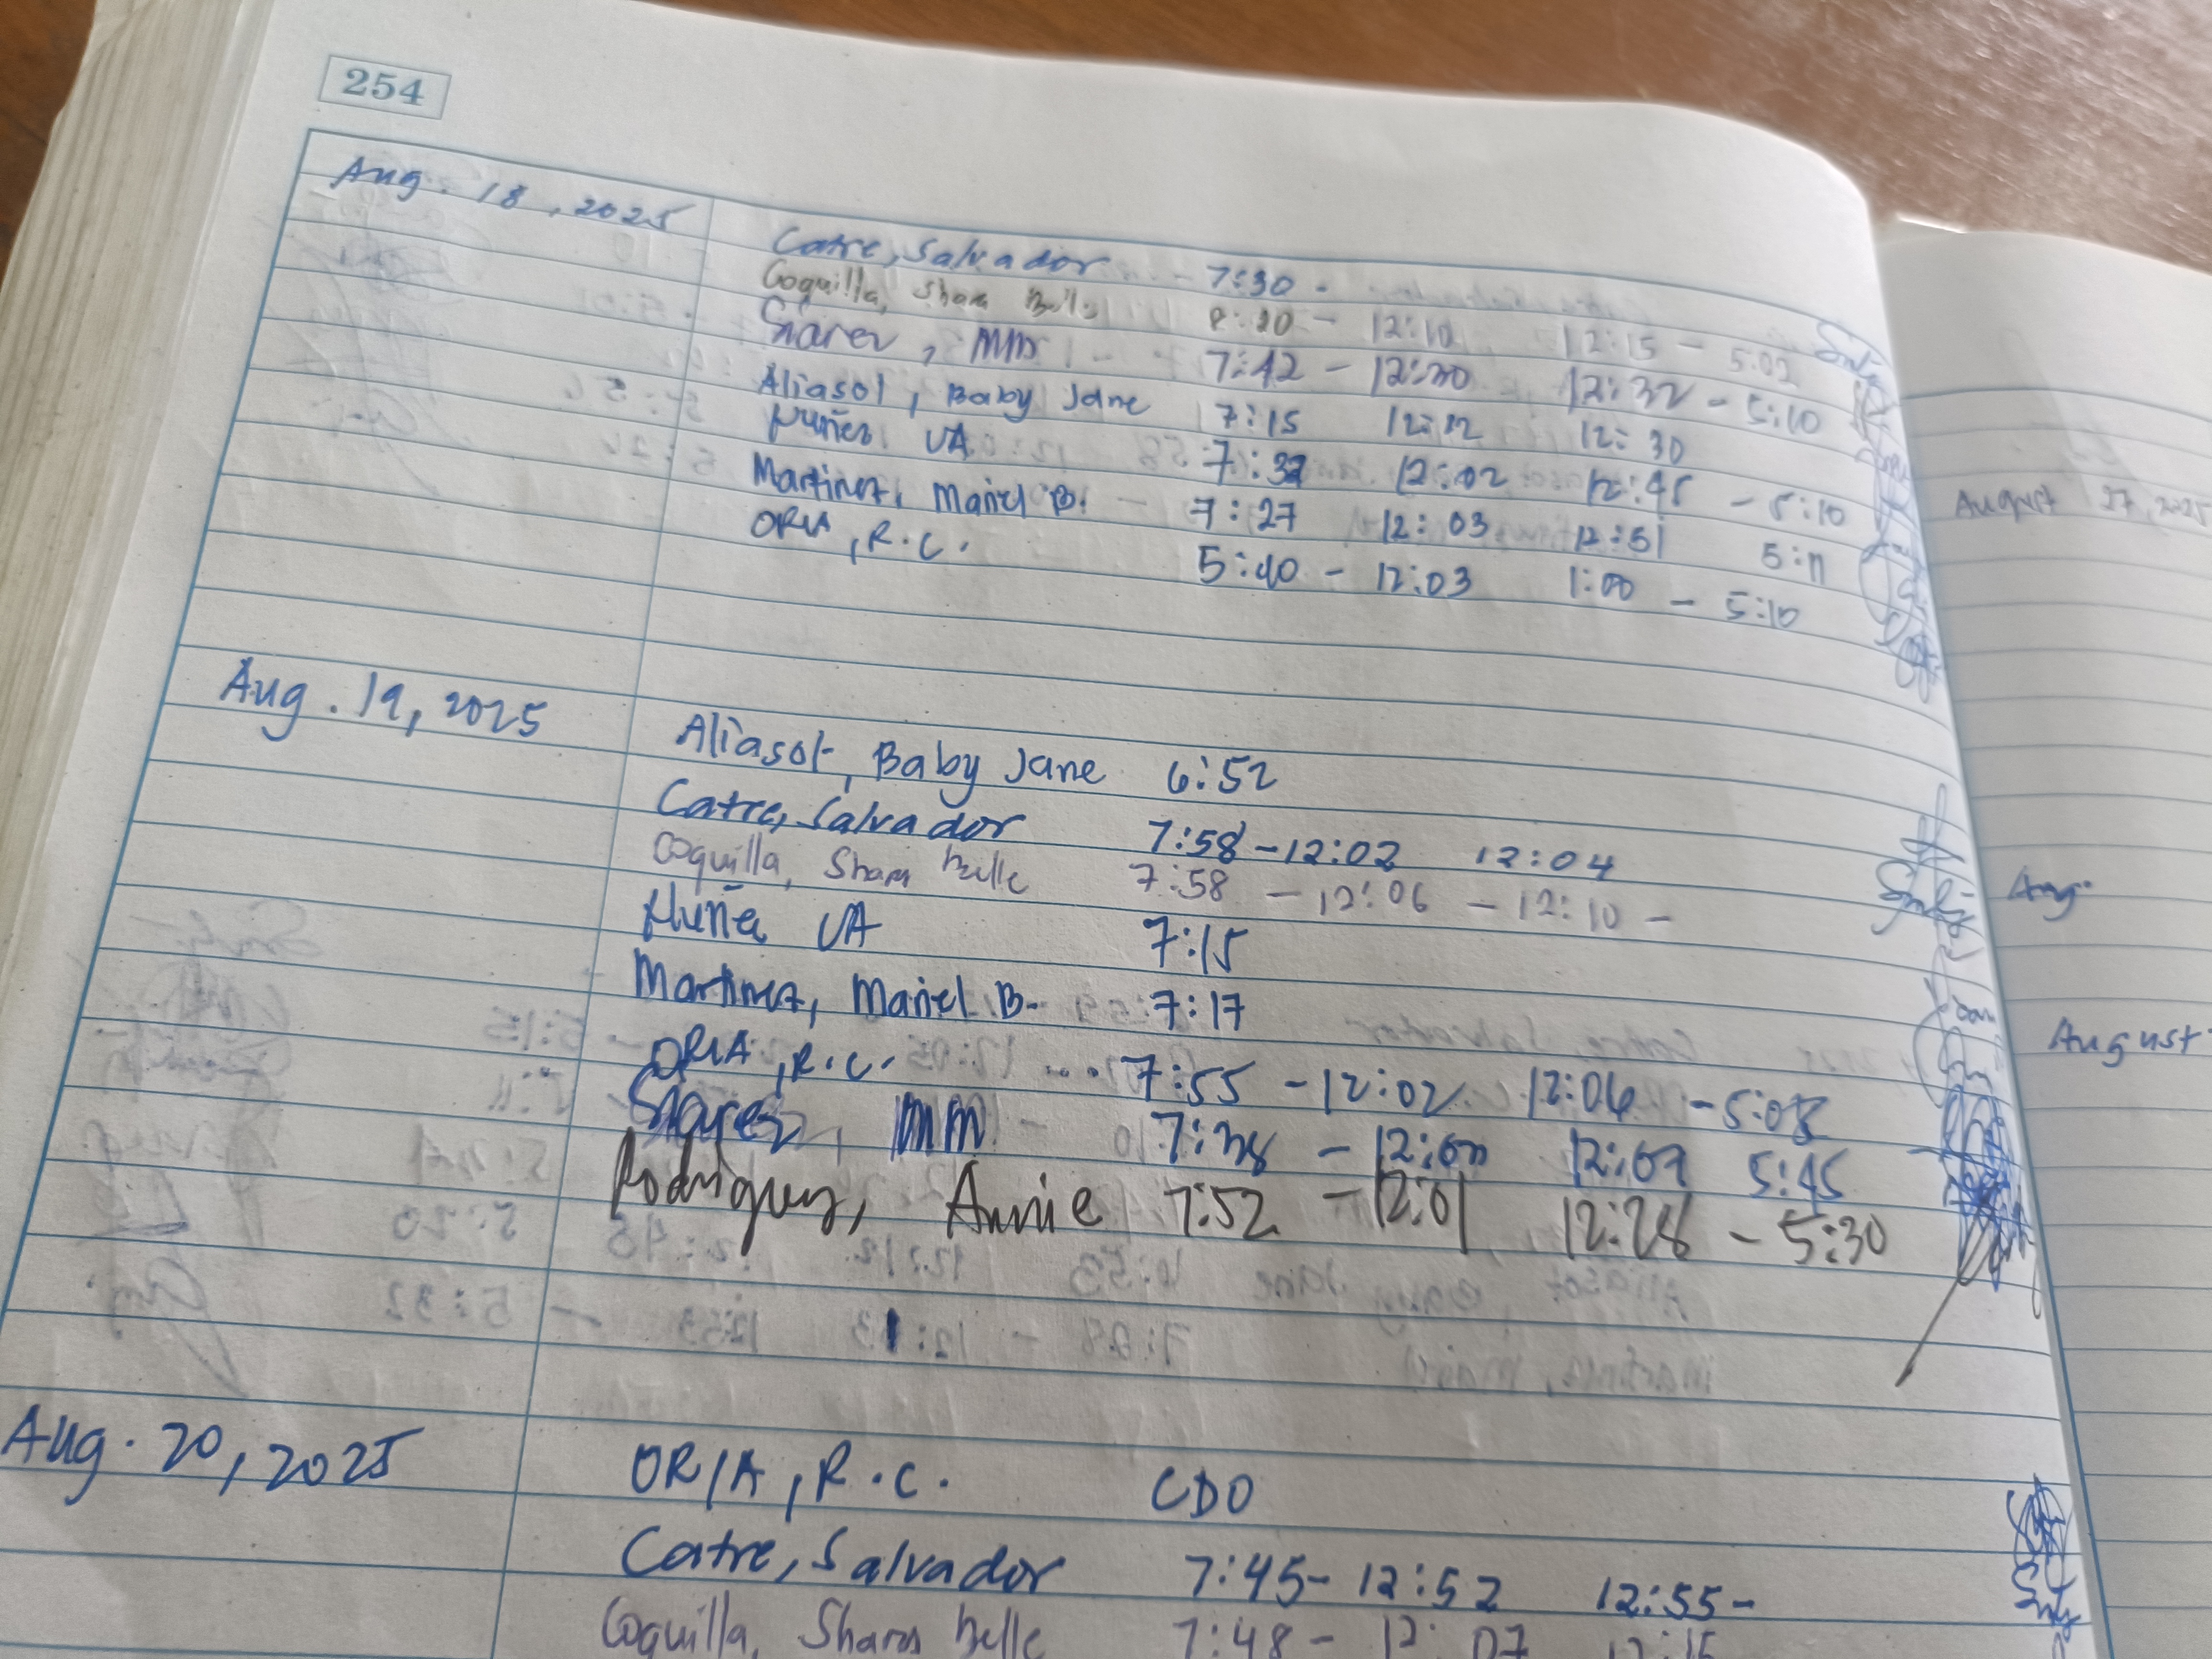 254
Aug. 18, 2025
Catre, Salvador - 7:30 -
Coquilla, Shara Belle 8:20 - 12:10 12:15 - 5:02
MM 7:42 - 12:30 12:32 - 5:10
Aliasot, Baby Jane 7:15 12:12 12:30
Nuñez VA 7:32 12:02 12:45 - 5:10
Martinez, Mariel B. - 7:27 12:03 12:51 5:11
ORIA, R.C. 5:40 - 12:03 1:00 - 5:10
Aug. 19, 2025
Aliasot, Baby Jane 6:52
Catre, Salvador 7:58 - 12:02 12:04
Coquilla, Shara Belle 7:58 - 12:06 - 12:10 -
Nuñez VA 7:15
Martinez, Mariel B. 7:17
ORIA, R.C. 7:55 - 12:02 12:06 - 5:08
MM 7:38 - 12:07 5:45
Rodriguez, Annie 7:52 - 12:01 12:28 - 5:30
Aug. 20, 2025
ORIA, R.C. CDO
Catre, Salvador 7:45 - 12:52 12:55 -
Coquilla, Shara Belle 7:48 - 12:07 12:15
August 27, 2025
Aug.
August